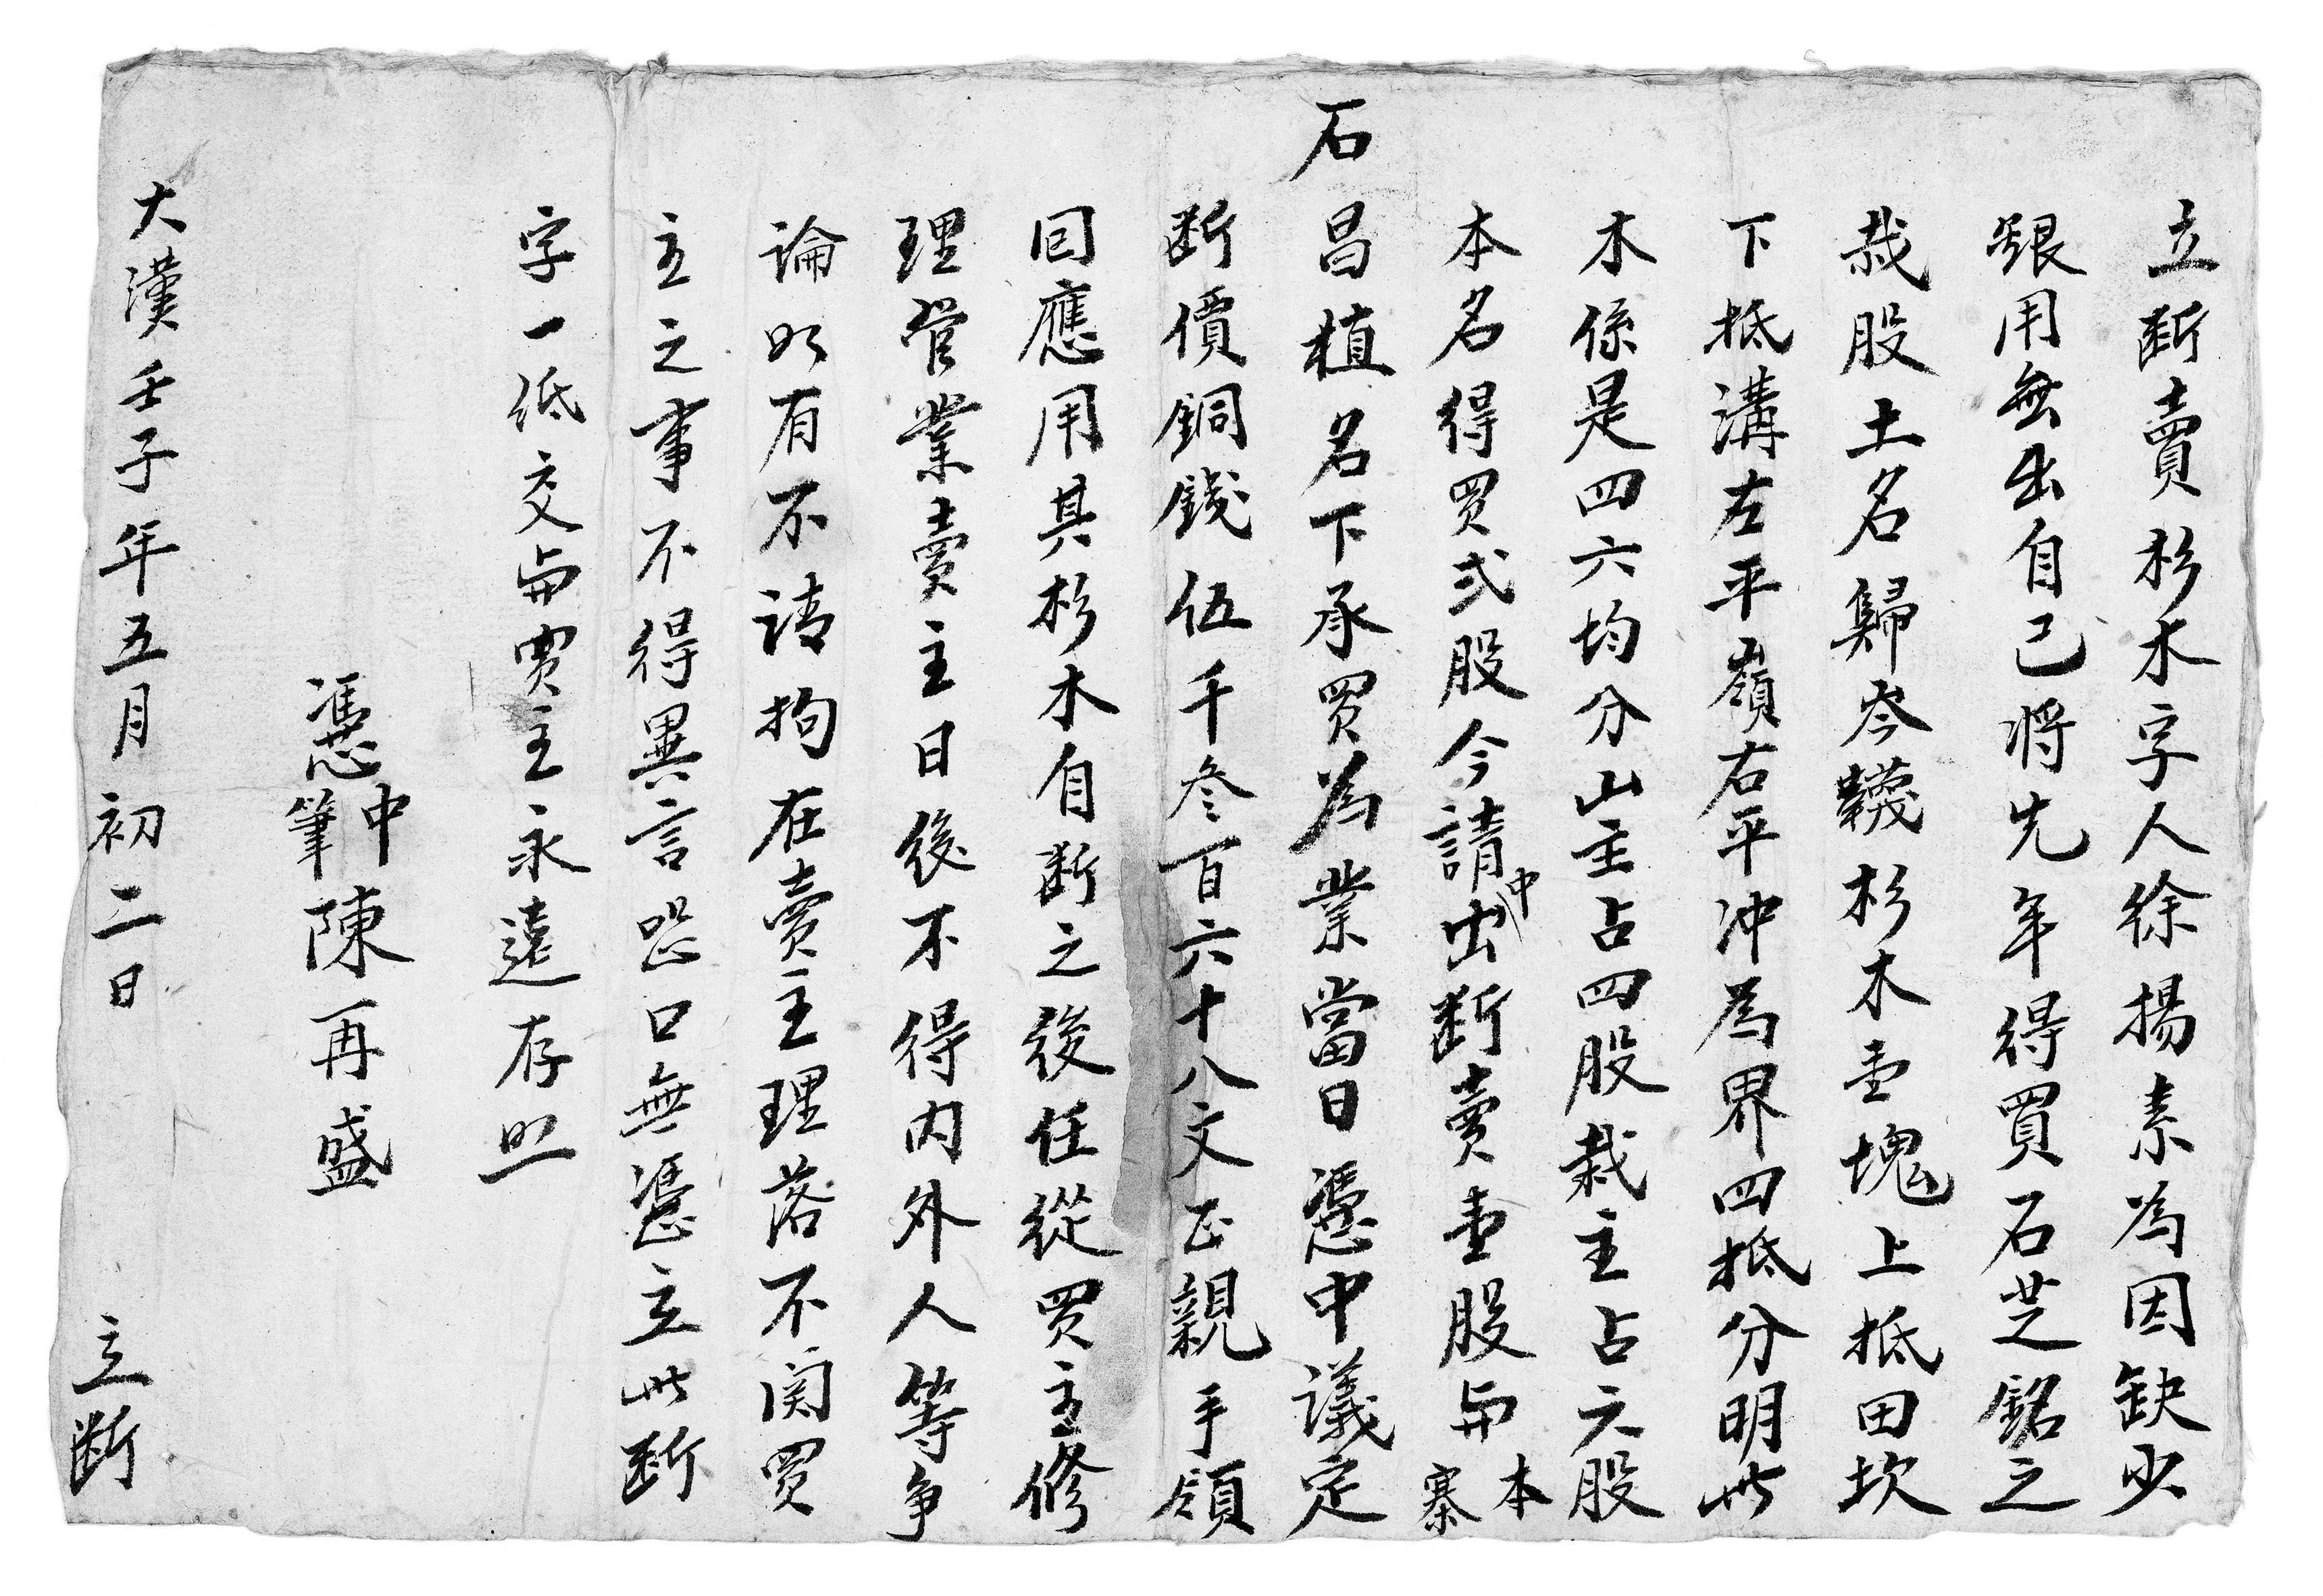 立断賣杉木字人徐揚素為因缺少
銀用無出自己將先年得買石芝銘之
栽股土名歸岑韈杉木壹塊上抵田坎
下抵溝左平嶺右平冲為界四抵分明此
木係是四六均分山主占四股栽主占六股
本名得買弍股今請中出断賣壹股与本寨
石昌植名下承買為業當日憑中議定
断價銅錢伍千叁百六十八文正親手領
回應用其杉木自断之後任從買主修
理管業賣主日後不得内外人等争
論如有不清拘在賣主理落不関買
主之事不得異言恐口無憑立此断
字一纸交与買主永遠存照
憑中筆陳再盛
大漢壬子年五月初二日 立断